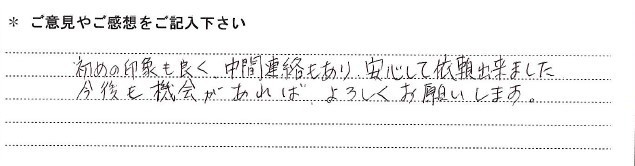 * ご意見やご感想をご記入下さい
初めの印象も良く 中間連絡もあり 安心して依頼出来ました
今後も機会があれば、よろしくお願いします。